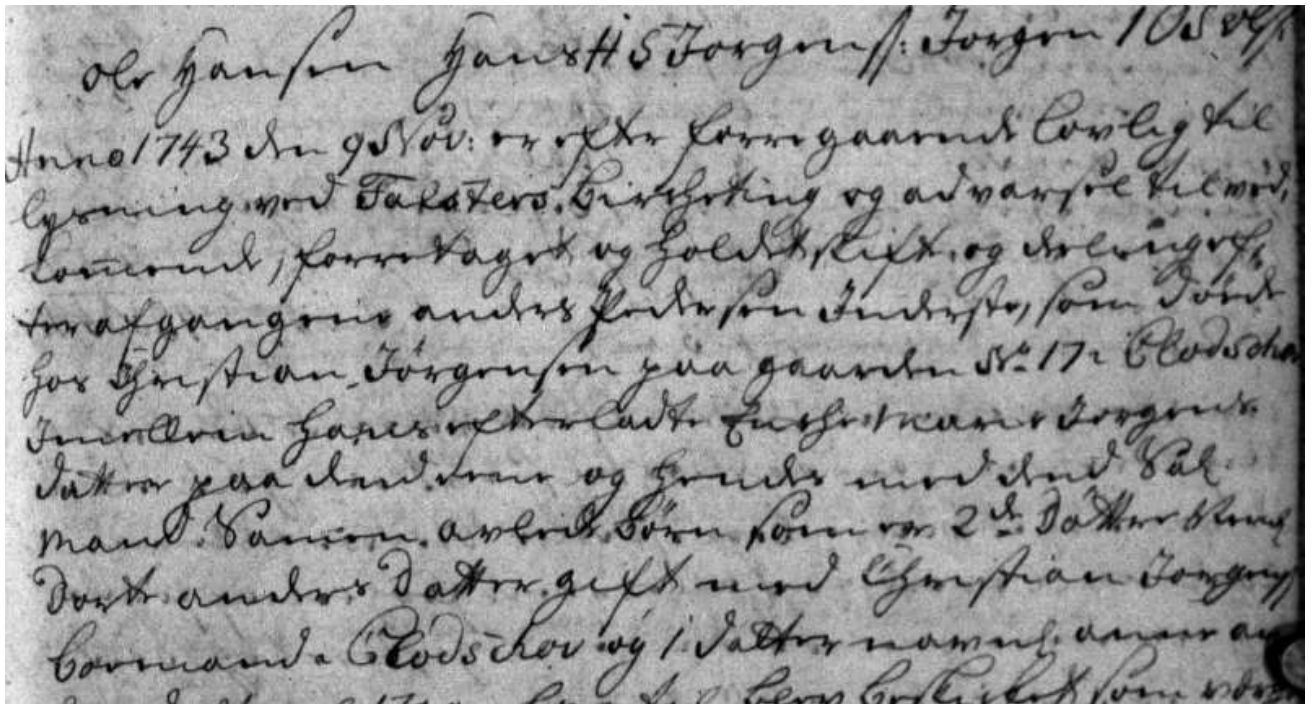 Ole Hansen Hans H S Jorgenss: Jorgen I O S
Anno 1743 den 9 Nov: er efter forregaaende lovlig til
lysning ved Falsters Bircheting og advarsel til ved,
kommende, forretaget og holdet skift og deeling ef,,
ter afgangene anders Pedersen Inderste, som døde
hos Christian Jørgensen paa gaarden No 17 i Clodschou
Imellem hans efterladte Enche Marie Jorgens
datter paa dend eene og hendes med dend Sal
Mand Samen avlede børn som er 2de døttre
dorte anders datter gift med Christian Jorgenss
boemand i Clodschov og 1 datter navnl: anne an
blev beskicket som